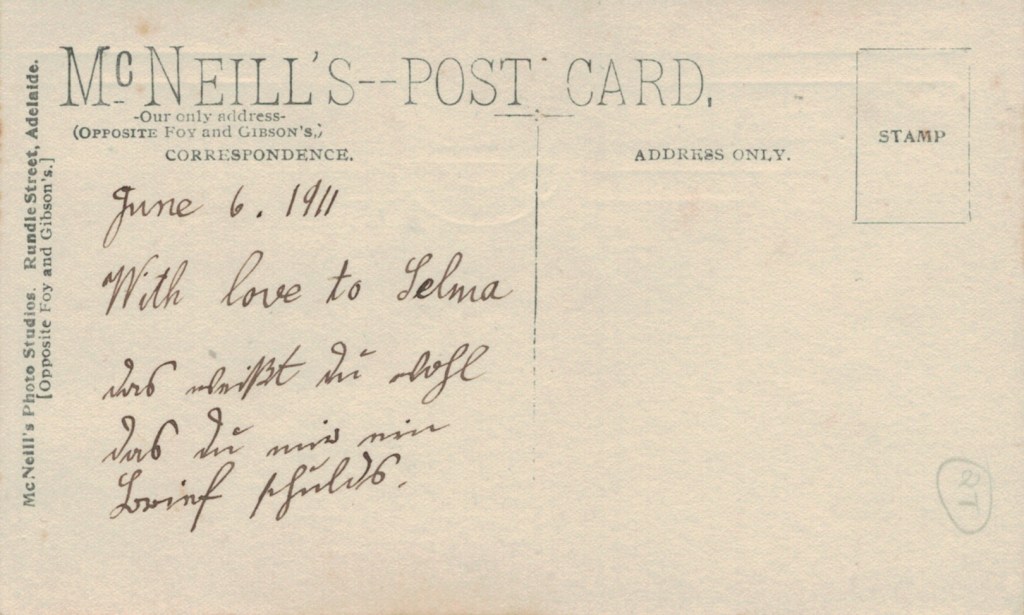 McNEILL'S--POST CARD.
-Our only address-
(OPPOSITE FOY and GIBSON'S,)
CORRESPONDENCE.
ADDRESS ONLY.
STAMP
McNeill's Photo Studios. Rundle Street, Adelaide.
[Opposite Foy and Gibson's.]
June 6. 1911
With love to Selma
das weißt du wohl
das du mir ein
Brief schulds.